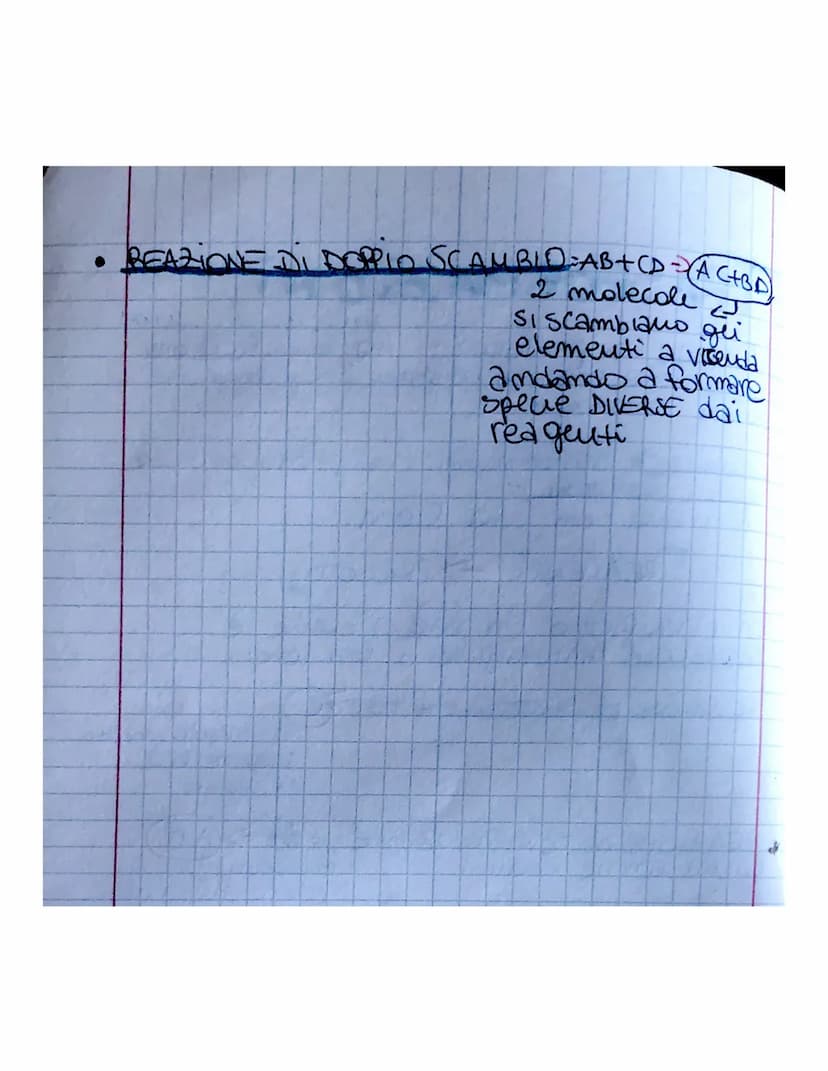 • REAZIONE DI DOPPIO SCAMBIO = AB + CD → AC+BD
2 molecole
si scambiano gli
elementi a vicenda
andando a formare
specie DIVERSE dai
reagenti